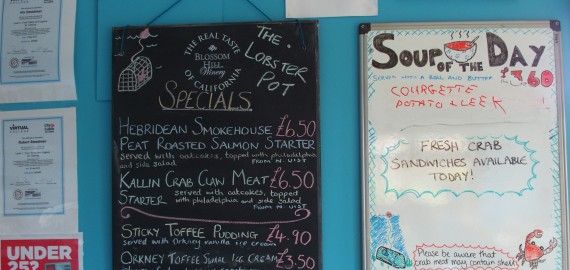 VIRTUAL
UNDER
25?
THE REAL TASTE
BLOSSOM
HILL
Winery
OF CALIFORNIA
THE
LOBSTER
POT
SPECIALS
HEBRIDEAN SMOKEHOUSE £6.50
PEAT ROASTED SALMON STARTER
served with oatcakes, topped with philadelphia
and side salad FROM N. UIST
KALLIN CRAB CLAW MEAT £6.50
STARTER served with oatcakes, topped
with philadelphia and side salad
FROM N. UIST
STICKY TOFFEE PUDDING £4.90
served with Orkney vanilla ice cream
ORKNEY TOFFEE SWIRL ICE CREAM £3.50
SOUP OF THE DAY
SERVED WITH A ROLL AND BUTTER £3.60
COURGETTE
POTATO & LEEK
FRESH CRAB
SANDWICHES AVAILABLE
TODAY!
Please be aware that
crab meat may contain shell